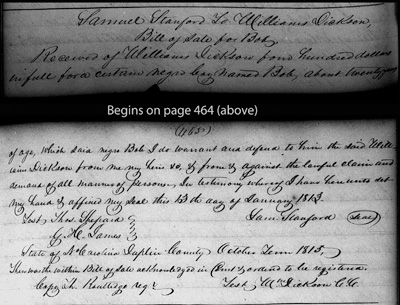 Samuel Stanford To Williams Dickson,
Bill of Sale for Bob,
Received of Williams Dickson four hundred dollars
in full for a certain negro boy named Bob, about twenty years
Begins on page 464 (above)
(465)
of age, which said negro Bob I do warrant and defend to him the said Will-
iams Dickson from me my heirs &c, & from & against the lawful claim and
demand of all manner of persons, In testimony whereof I have hereunto set
my hand & affixed my seal this 13th day of January 1813.
Test Thos. Sheppard
Sam Stanford (Seal)
James
State of N Carolina Duplin County October Term 1815,
The within Bill of Sale acknowledged in Court & ordered to be registered.
Copy Routledge regr
Test, Wm Dickson C. C.